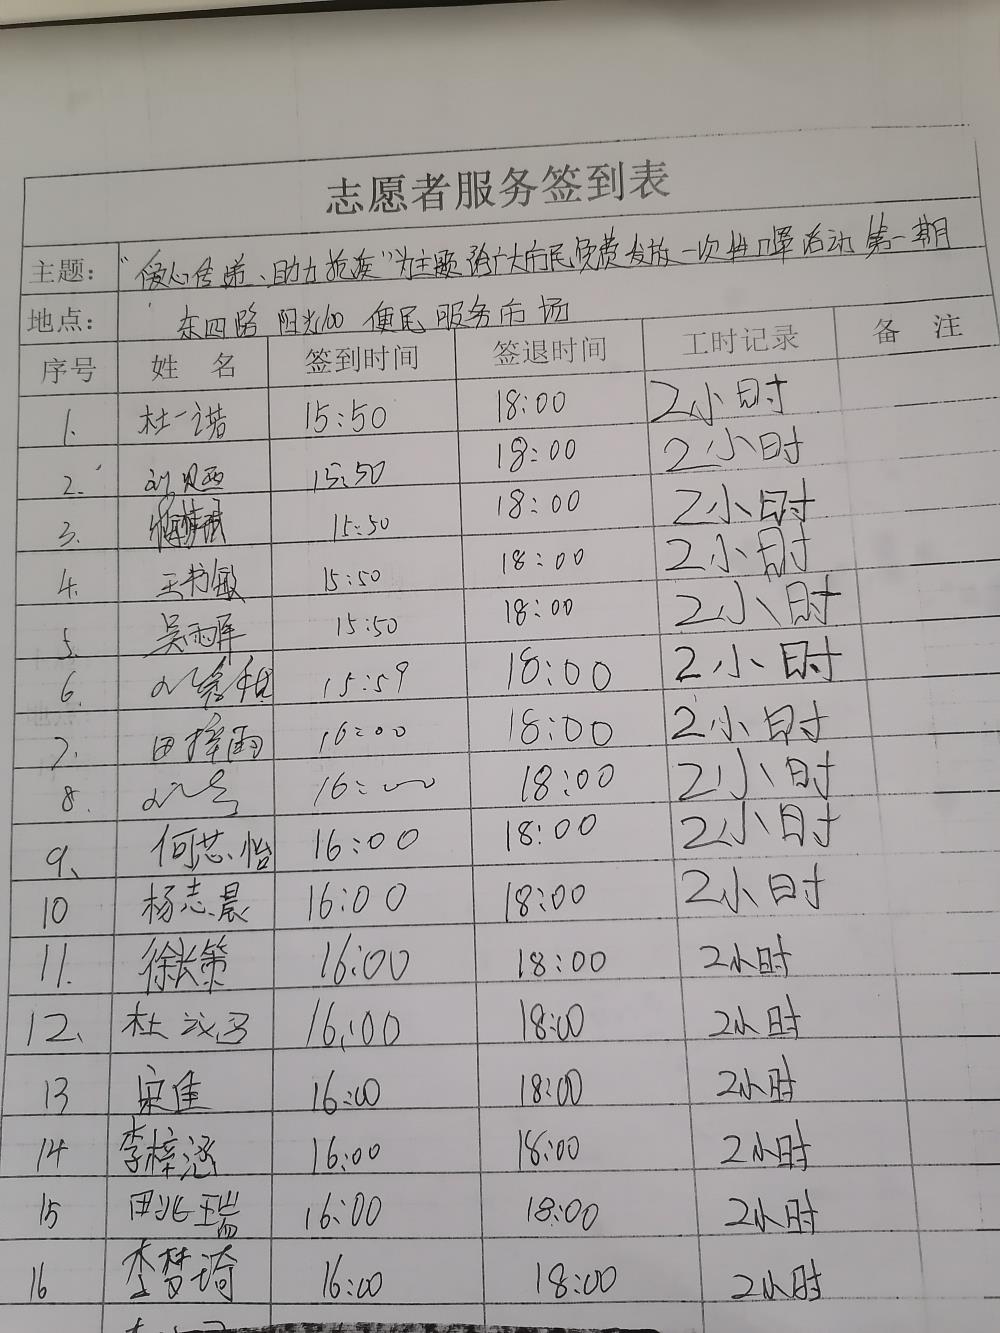 志愿者服务签到表
主题: "爱心传递、助力抗疫"为主题 广大市民免费发放一次性口罩活动 第一期
地点: 东四路 阳光100 便民服务市场
序号 姓名 签到时间 签退时间 工时记录 备注
1. 杜一诺 15:50 18:00 2小时
2. 刘贝西 15:50 18:00 2小时
3. 15:50 18:00 2小时
4. 王书敏 15:50 18:00 2小时
5 吴雨 15:50 18:00 2小时
6. 15:59 18:00 2小时
7. 田择雨 16:00 18:00 2小时
8. 16:00 18:00 2小时
9、 何芯怡 16:00 18:00 2小时
10 杨志晨 16:00 18:00 2小时
11. 徐长策 16:00 18:00 2小时
12、 杜 16:00 18:00 2小时
13 宋佳 16:00 18:00 2小时
14 李梓涵 16:00 18:00 2小时
15 田兆瑞 16:00 18:00 2小时
16 李梦琦 16:00 18:00 2小时